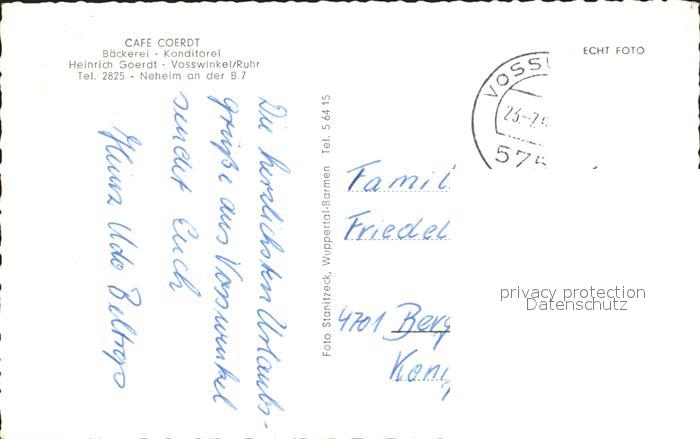 CAFÉ COERDT
Bäckerei · Konditorei
Heinrich Goerdt · Vosswinkel/Ruhr
Tel. 2825 - Neheim an der B.7
ECHT FOTO
VOSSW
23.-7.
575
Die herzlichsten Urlaubs-
grüße aus Vosswinkel
sendet Euch
Heinz Udo
Foto Stanitzeck, Wuppertal-Barmen Tel. 5 64 15
Famil
Friedel
4701 Berg
Koni
privacy protection
Datenschutz